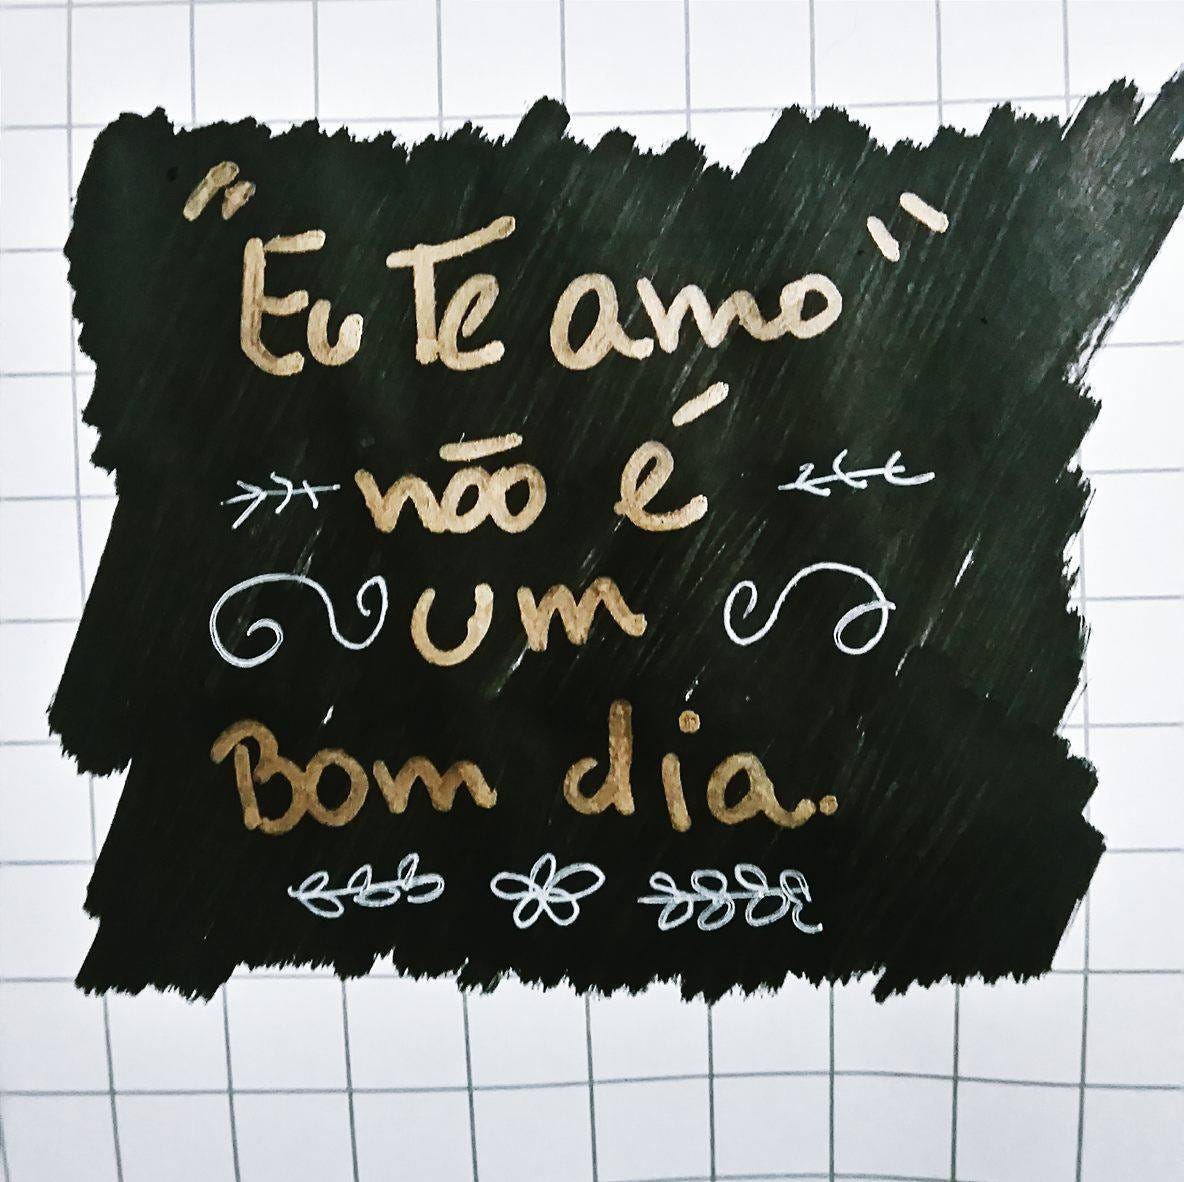 "Eu Te amo"
não é
um
Bom dia.